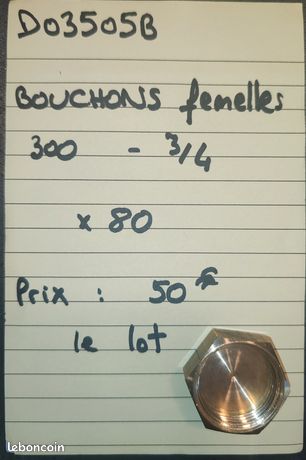 D03505B
BOUCHONS femelles
300 - 3/4
x 80
Prix : 50 €
le lot
leboncoin